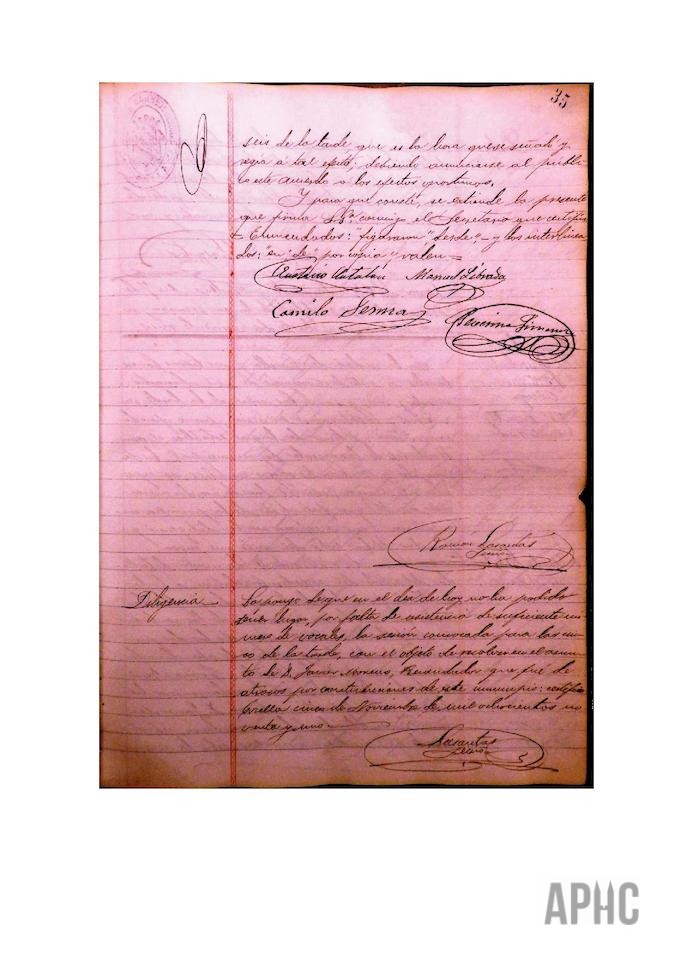 35
seis de la tarde que es la hora que se señaló y
regia á tal efecto; debiendo anunciarse al públi-
co este acuerdo a los efectos oportunos.
Y para que conste, se extiende la presente
que firma S.Sª conmigo el Secretario que certifico
Enmendados: "figuraron" "desde" y los interlinea
dos: "en" "de" por copia "valen=
Manuel Librada
Camilo Serma
Ramon Lasantas
Diligencia
La pongo de que en el dia de hoy no ha podido
tener lugar, por falta de asistencia de suficiente nú-
mero de vocales, la sesion convocada para las cin-
co de la tarde, con el objeto de resolver en el asun-
to de D. Javier Moreno, Recaudador que fué de
atrasos por contribuciones de este municipio: certifico
cinco de Noviembre de mil ochocientos no
venta y uno.
Lasantas
APHC